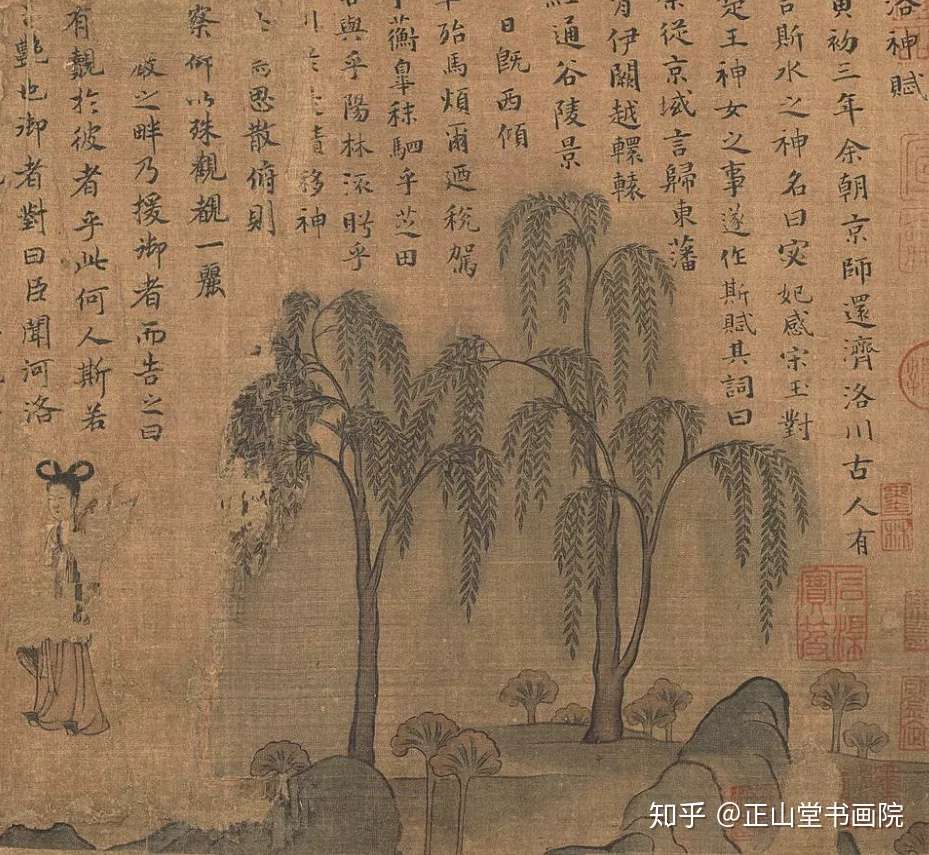 洛神賦
黃初三年余朝京師還濟洛川古人有
言斯水之神名曰宓妃感宋玉對
楚王神女之事遂作斯賦其詞曰
余從京域言歸東藩
背伊闕越轘轅
經通谷陵景
日既西傾
車殆馬煩爾迺稅駕
乎蘅皋秣駟乎芝田
容與乎陽林流眄乎
川於是精移神
而思散俯則
察仰以殊觀覩一麗
之畔乃援御者而告之曰
有覿於彼者乎此何人斯若
艷也御者對曰臣聞河洛
知乎 @正山堂书画院